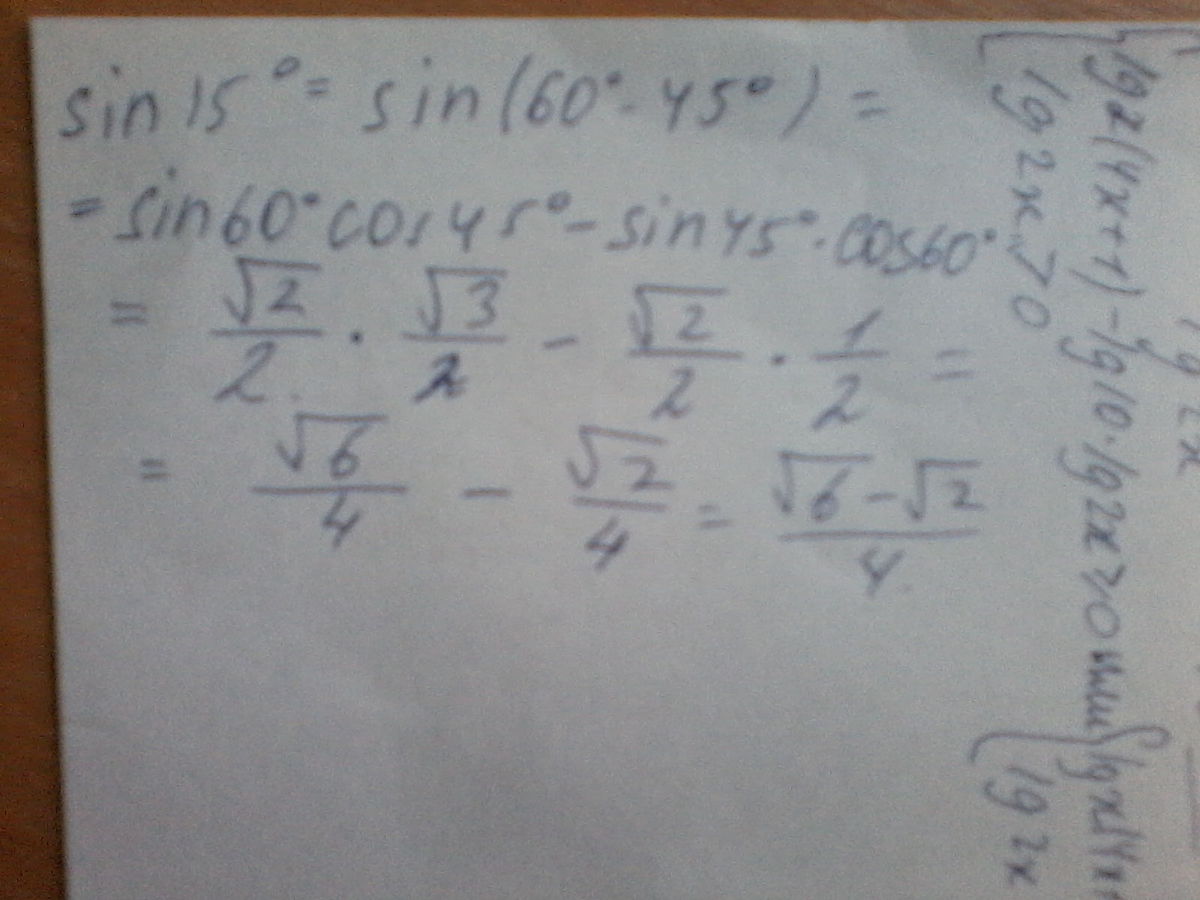 sin 15° = sin(60° - 45°) =
= sin60° cos45° - sin45° · cos60°
= √2/2 · √3/2 - √2/2 · 1/2 =
= √6/4 - √2/4 = (√6 - √2)/4
lg 2x
lg2(4x+1) - lg10 · lg2x > 0 или
lg2x > 0
lg 2x